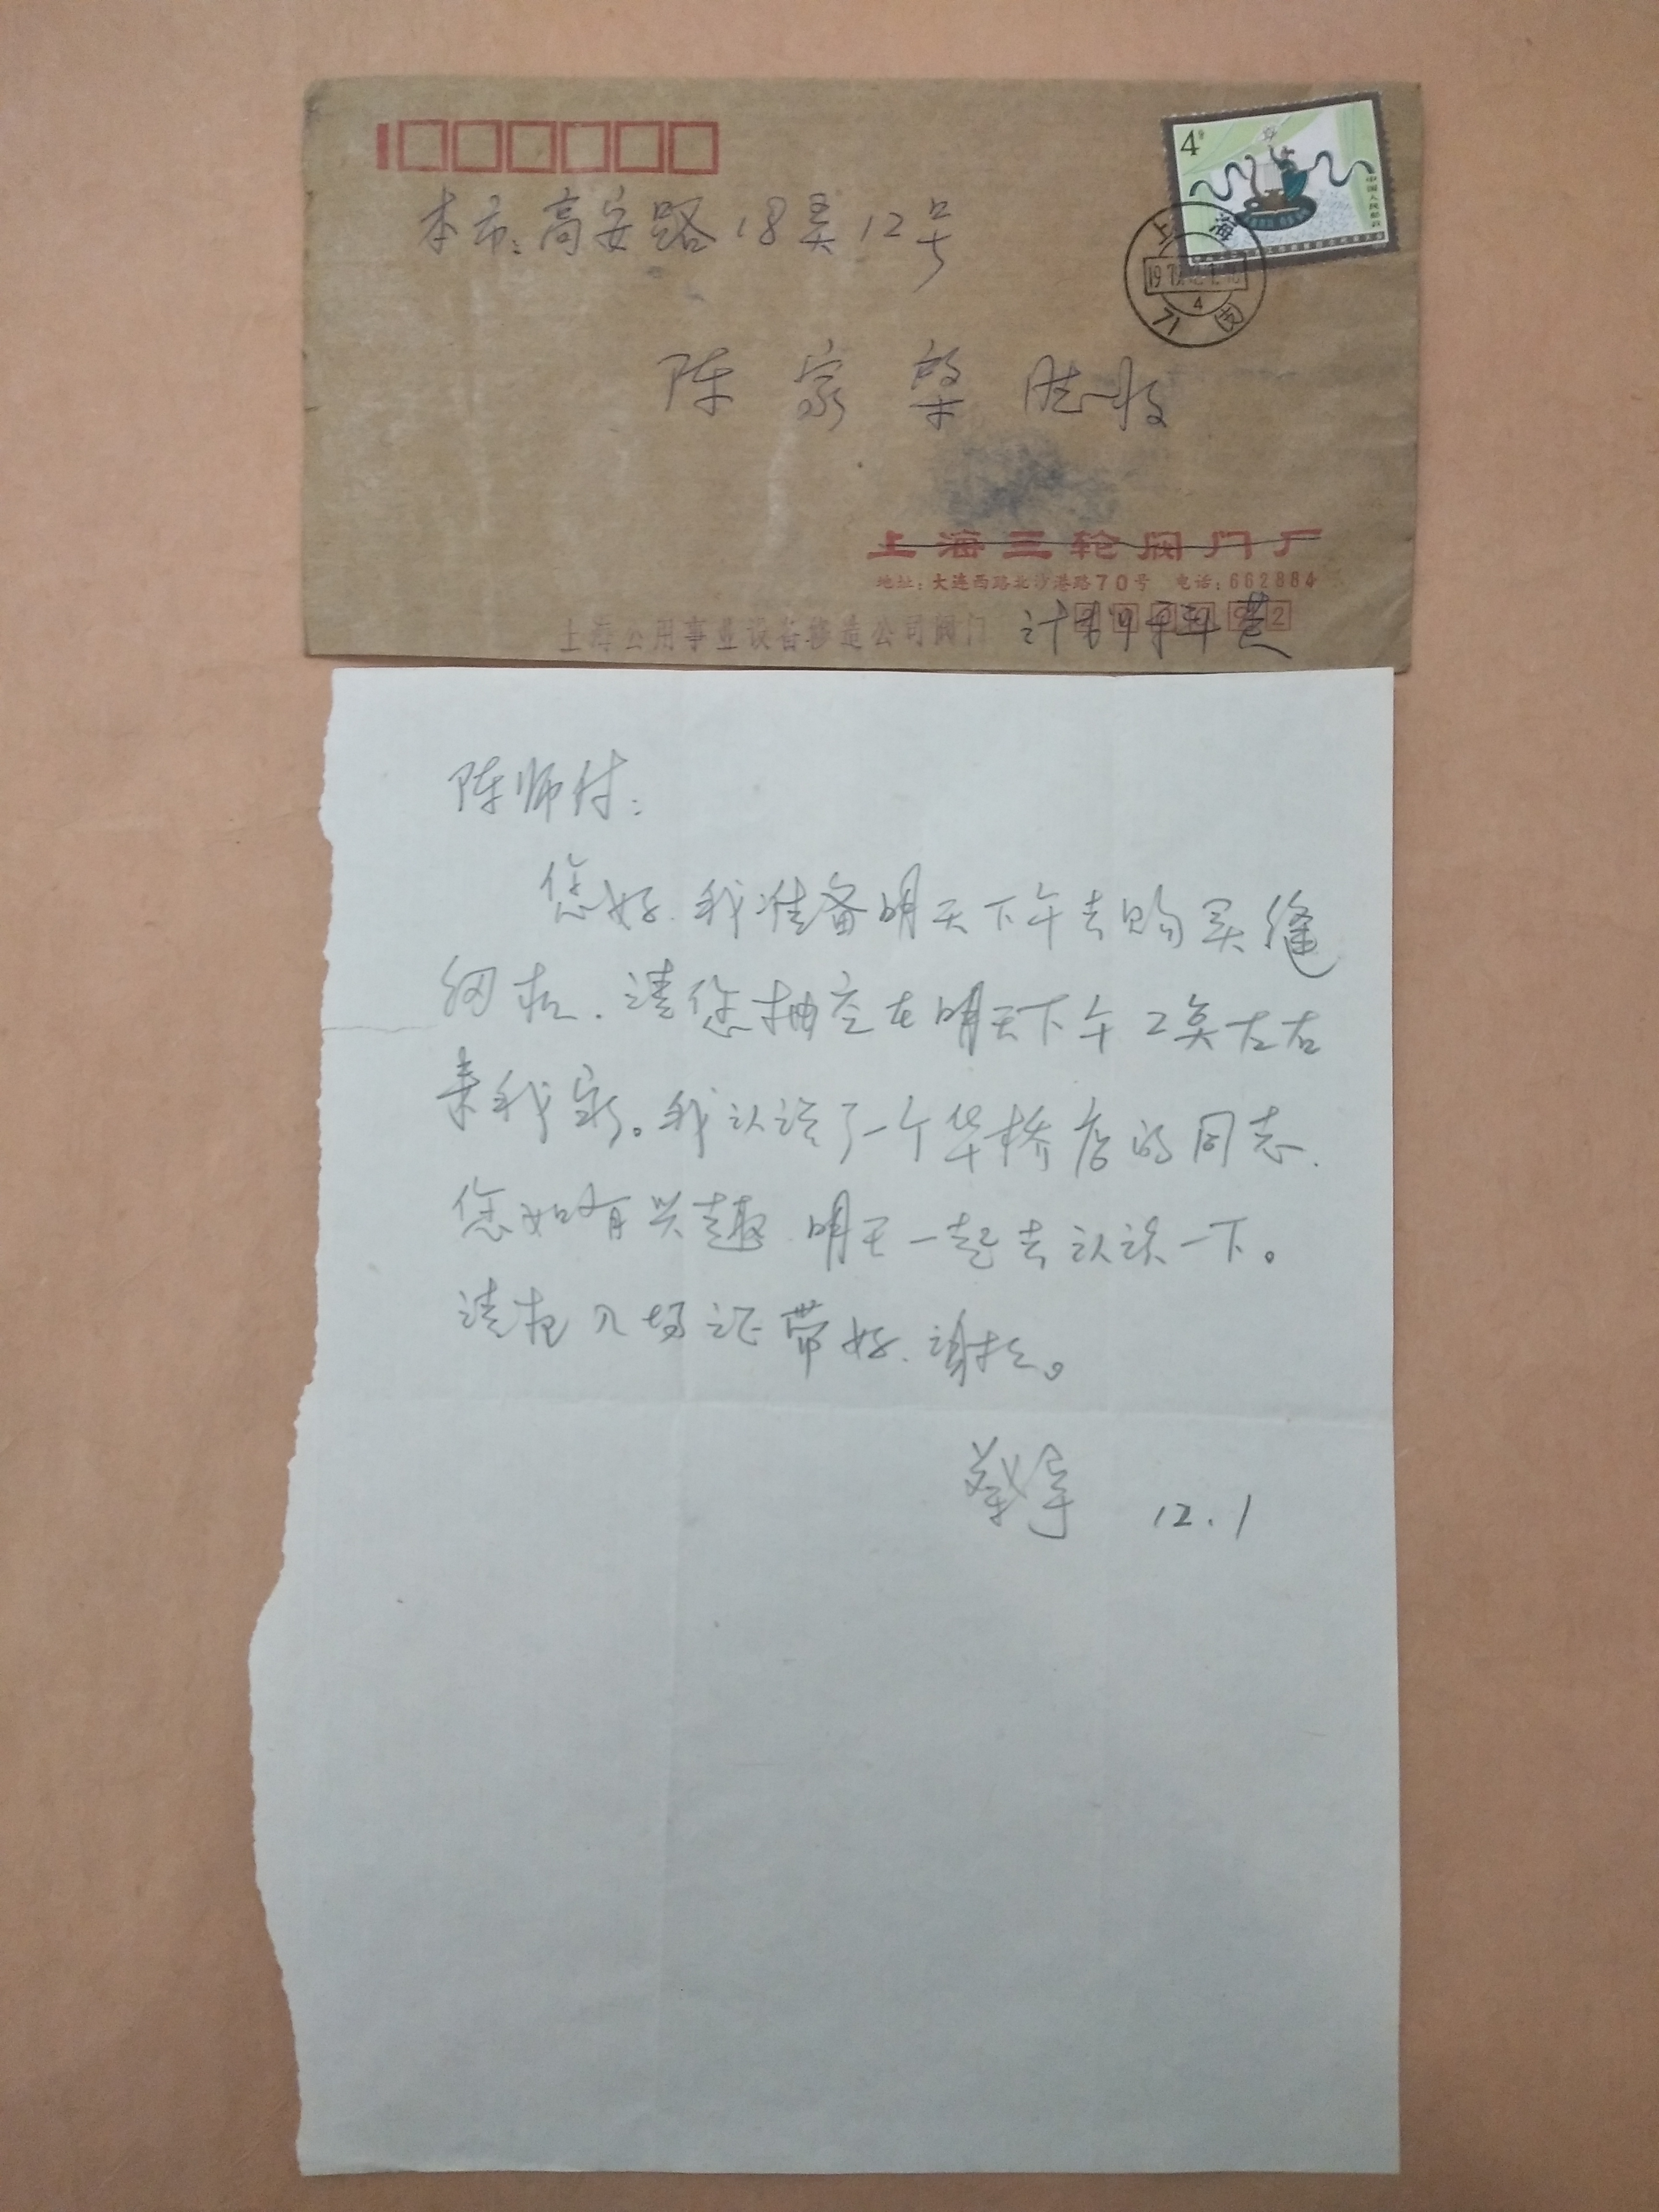 本市:高安路18弄12号
陈家棨 同志收
4分
中国人民邮政
上海
4
上海三轮阀门厂
地址:大连西路北沙港路70号 电话:662884
上海公用事业设备修造公司阀门
计划科
陈师付:
您好.我准备明天下午去购买缝
纫机.请您抽空在明天下午2矣左右
来我家。我认识了一个华桥店的同志.
您如有兴趣.明天一起去认识一下。
请把入场证带好.谢谢。
12.1